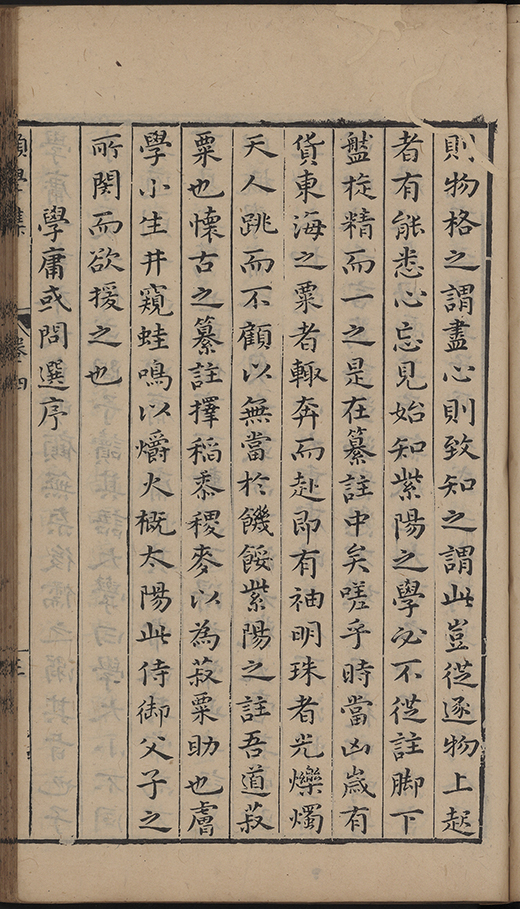 則物格之謂盡心則致知之謂此豈從逐物上起
者有能悉心忘見始知紫陽之學必不從註脚下
盤旋精而一之是在纂註中矣嗟乎時當凶歲有
貨東海之粟者輙奔而赴即有袖明珠者光爍燭
天人跳而不顧以無當於饑餒紫陽之註吾道菽
粟也懷古之纂註擇稻黍稷麥以為菽粟助也膚
學小生井窺蛙鳴以爝火概太陽此侍御父子之
所関而欲援之也
學庸或問選序
學集
卷四